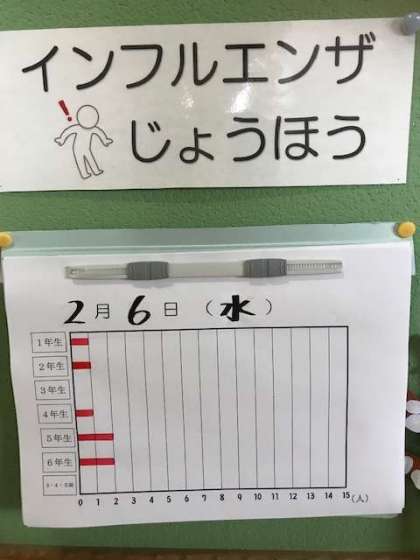 インフルエンザ
!
じょうほう
2月6日(水)
1年生
2年生
3年生
4年生
5年生
6年生
0 1 2 3 4 5 6 7 8 9 10 11 12 13 14 15 (人)